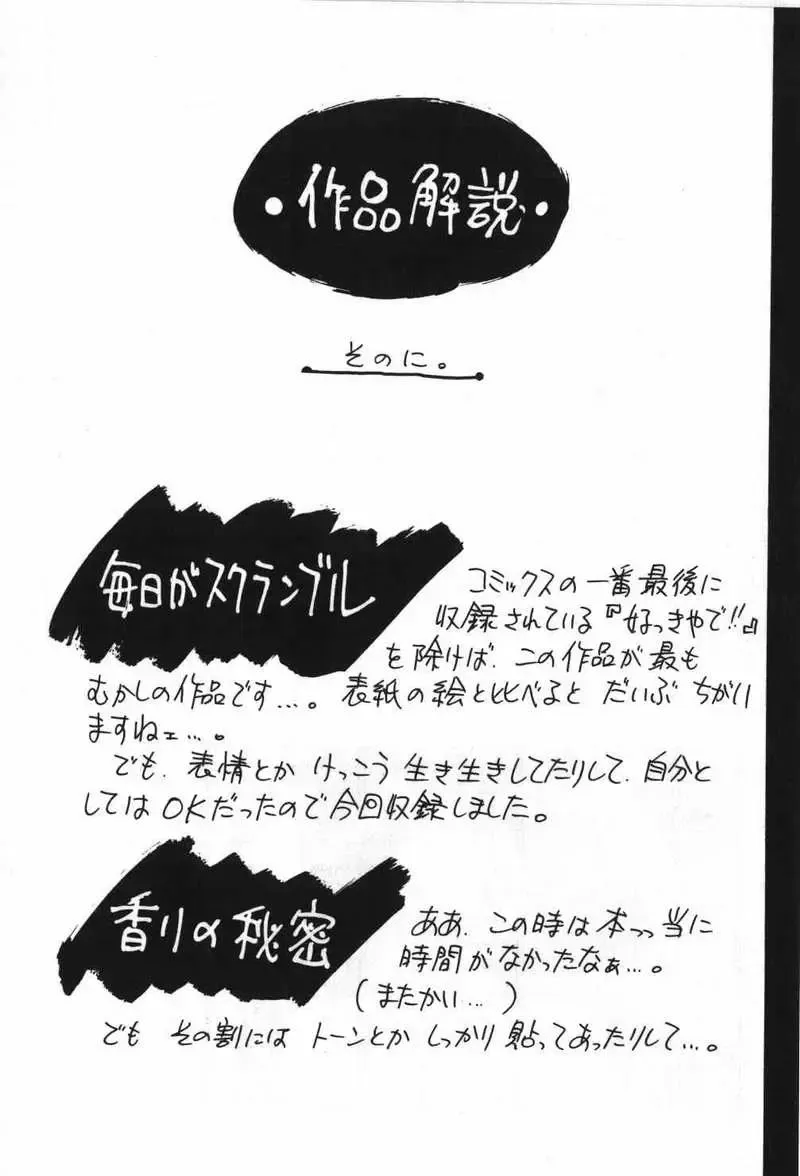 ・作品解説・
そのに。
毎日がスクランブル
コミックスの一番最後に
収録されている『好っきゃで!!』
を除けば、この作品が最も
むかしの作品です…。表紙の絵と比べると だいぶ ちがい
ますねェ…。
でも、表情とか けっこう 生き生きしてたりして、自分と
しては OKだったので今回収録しました。
香りの秘密
ああ、この時は本っっ当に
時間がなかったなぁ…。
(またかい…)
でも その割には トーンとか しっかり 貼ってあったりして…。